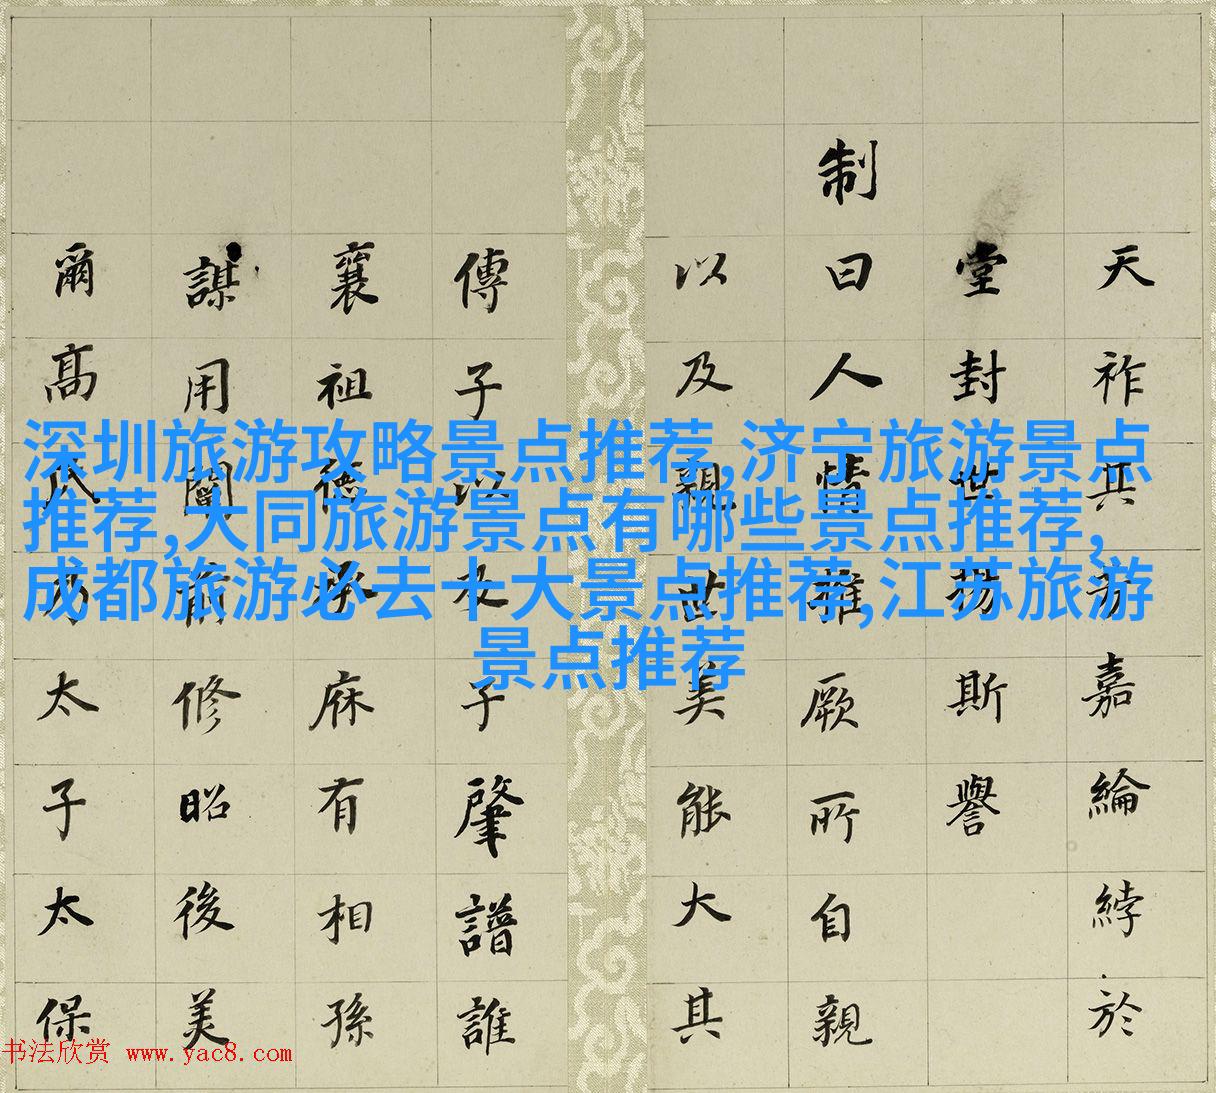 深圳旅游攻略景点推荐,济宁旅游景点
推荐,大同旅游景点有哪些景点推荐,
成都旅游必去十大景点推荐,江苏旅游
景点推荐
天祚共嘉綸綍於
堂封世揚斯譽
制曰人情雖厥所自親
以及親世美能大其
傳子以及子肇譜誰
襄祖德承庥有相孫
謀用闡前修昭後美
爾高乃太子太保
书法欣赏 www.yac8.com